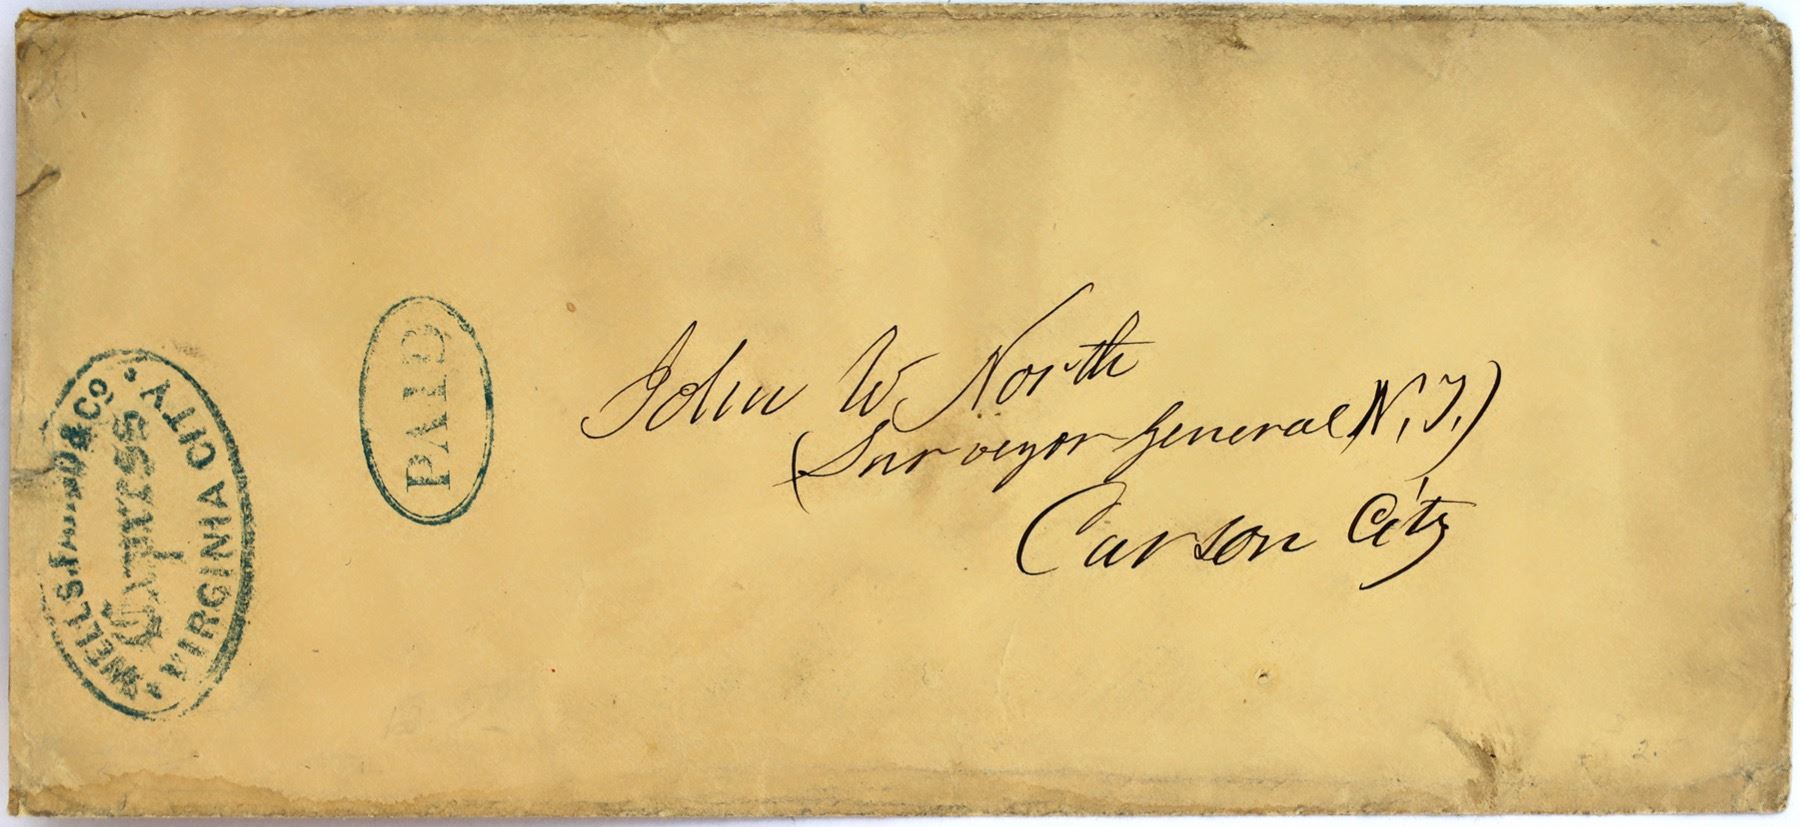 WELLS, FARGO & CO.
Express
VIRGINIA CITY.
PAID
John W. North
(Surveyor General N, T,)
Carson City
2.